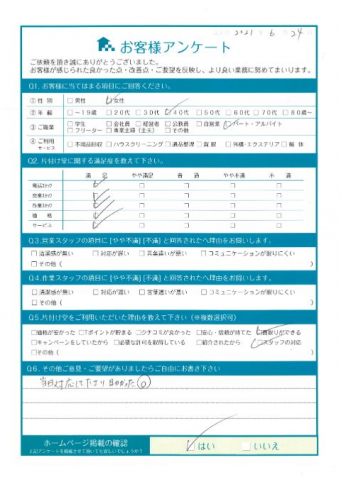 2021 6 24
お客様アンケート
ご依頼を頂き誠にありがとうございました。
お客様が感じられた良かった点・改善点・ご要望を反映し、より良い業務に努めてまいります。
Q1. お客様に当てはまる項目にご回答ください。
① 性 別 □ 男性 □ 女性
② 年 齢 □ ～19歳 □ 20代 □ 30代 □ 40代 □ 50代 □ 60代 □ 70代 □ 80歳～
③ ご職業 □ 学生 □ 会社員 □ 経営者 □ 公務員 □ 自営業 □ パート・アルバイト
□ フリーター □ 専業主婦(主夫) □ その他
④ ご利用サービス □ 不用品回収 □ ハウスクリーニング □ 遺品整理 □ 買取 □ 外構・エクステリア □ 解体
Q2. 片付け堂に関する満足度を教えて下さい。
満 足 やや満足 普 通 やや不満 不 満
電話対応
営業対応
作業対応
価 格
サービス
Q3. 営業スタッフの項目に [やや不満] [不満] と回答された方へ理由をお伺いします。
□ 清潔感が無い □ 対応が遅い □ 言葉遣いが悪い □ コミュニケーションが取りにくい
□ その他 ( )
Q4. 作業スタッフの項目に [やや不満] [不満] と回答された方へ理由をお伺いします。
□ 清潔感が無い □ 対応が遅い □ 言葉遣いが悪い □ コミュニケーションが取りにくい
□ その他 ( )
Q5. 片付け堂をご利用いただいた理由を教えて下さい(※複数選択可)
□ 価格が安かった □ Tポイントが貯まる □ クチコミが良かった □ 安心・信頼が持てた □ 買取りができる
□ キャンペーンをしていたから □ 必要な許可を取得している □ 紹介されたから □ スタッフの対応
□ その他 ( )
Q6. その他ご意見・ご要望がありましたらご自由にお書き下さい
当日対応して下さり
ホームページ掲載の確認
□ はい □ いいえ